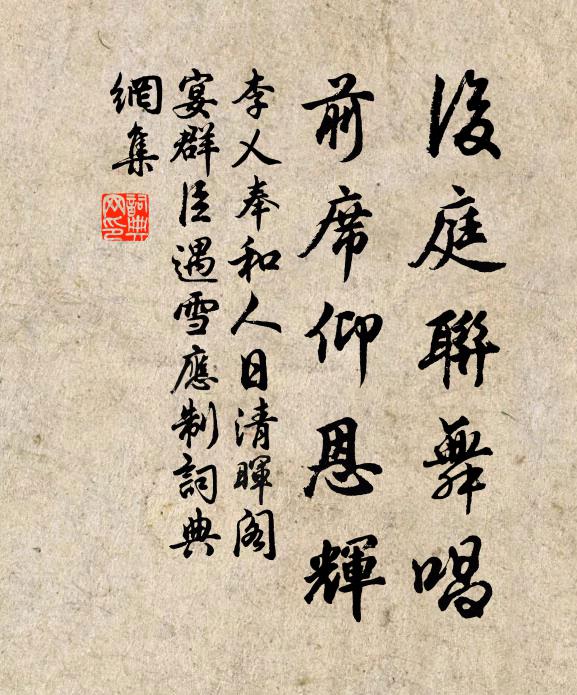 後庭聯舞唱
前席仰恩輝
李乂奉和人日清暉閣
宴群臣遇雪應制詞典
網集
詞典網印